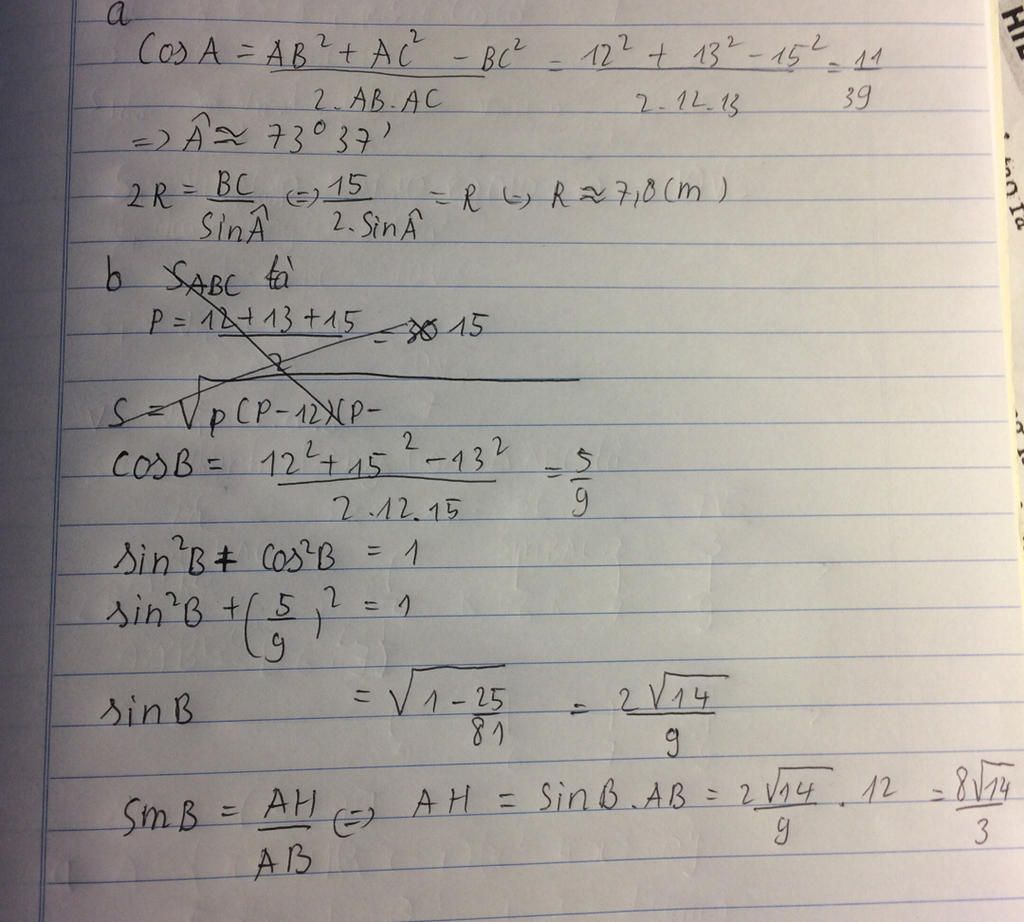 a
Cos A = \frac{AB² + AC² - BC²}{2.AB.AC} = \frac{12² + 13² - 15²}{2.12.13} = \frac{11}{39}
=> Â ≈ 73° 37'
2R = \frac{BC}{Sin Â} <=> \frac{15}{2.Sin Â} = R <=> R ≈ 7,8 (m)
b S_{ABC} là
P = \frac{12+13+15}{2} = 30 15
S = √p(P-12)(P-
Cos B = \frac{12² + 15² - 13²}{2.12.15} = \frac{5}{9}
sin²B + cos²B = 1
sin²B + (\frac{5}{9})² = 1
sin B = √{1 - \frac{25}{81}} = \frac{2√14}{9}
Sin B = \frac{AH}{AB} <=> AH = Sin B . AB = \frac{2√14}{9} . 12 = \frac{8√14}{3}